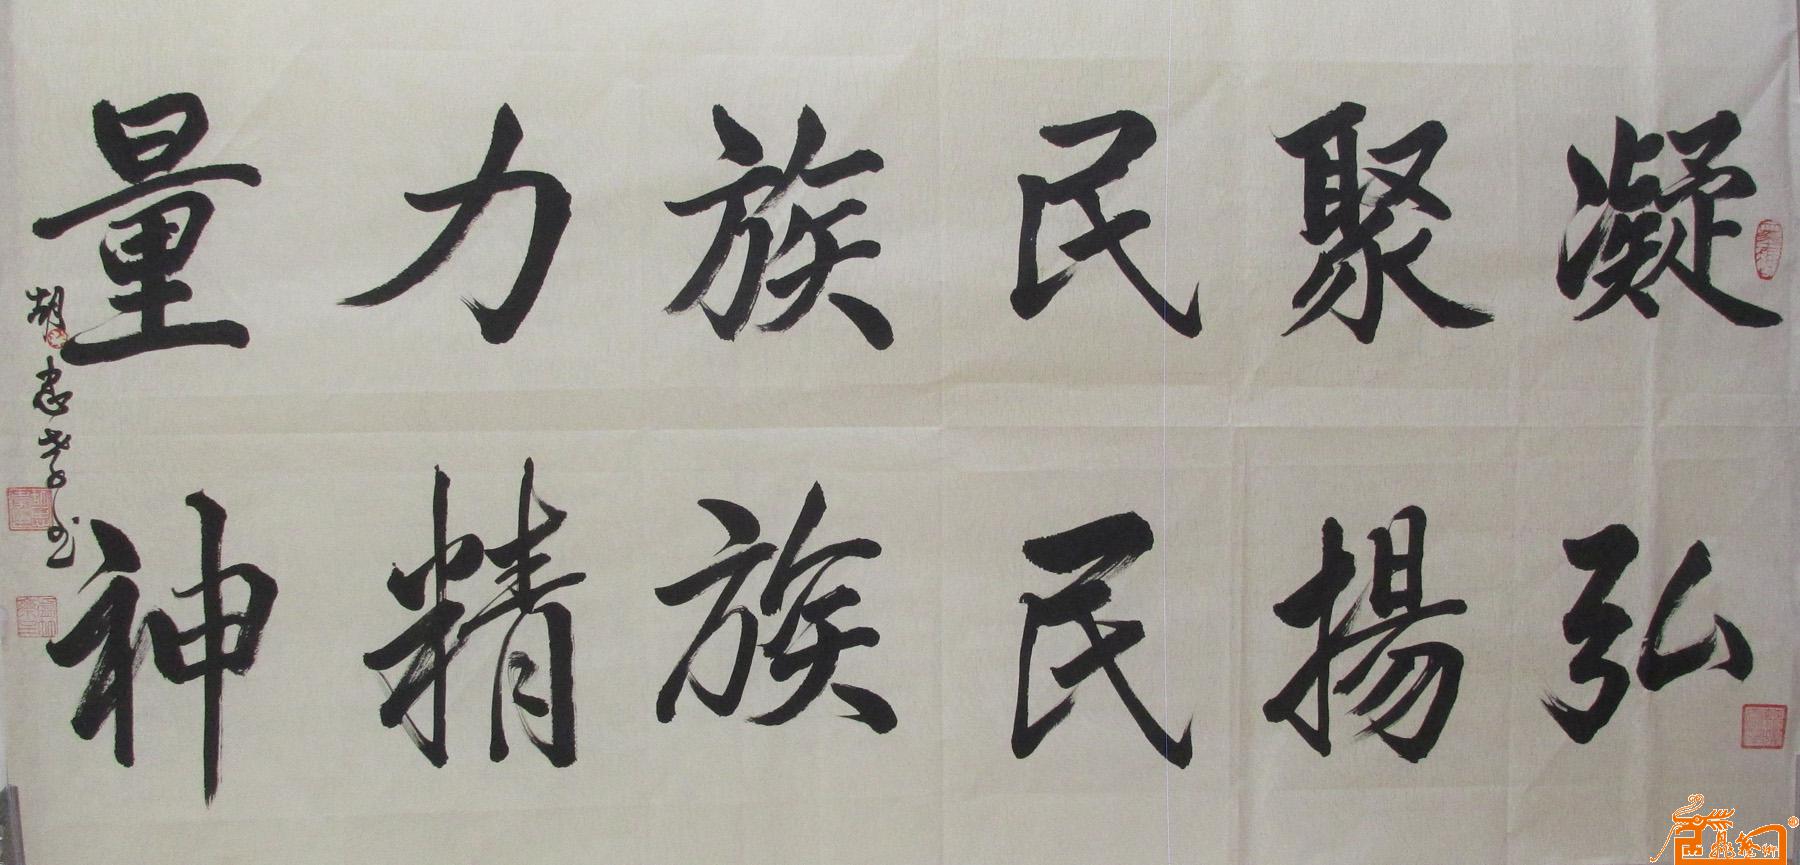 凝聚民族力量
弘揚民族精神
胡忠孝书